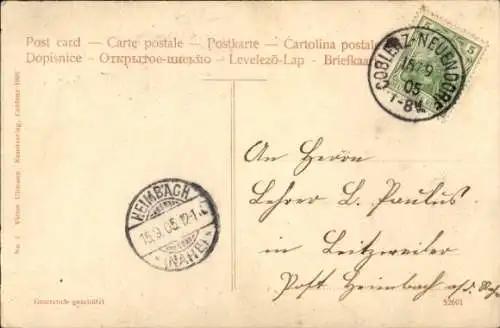 Post card — Carte postale — Postkarte — Cartolina postale
Dopisnice — Открытое-письмо — Levelező-Lap — Briefkaa
5 5
COBLENZ-NEUENDORF
15 9
05
1-8V.
An Herrn
Lehrer L. Paulus.
in Leitzweiler
Post Heimbach a/d. Nahe
HEIMBACH
15.9.05.12-1
(NAHE)
Kunstverlag, Coblenz
Gesetzlich geschützt
52601